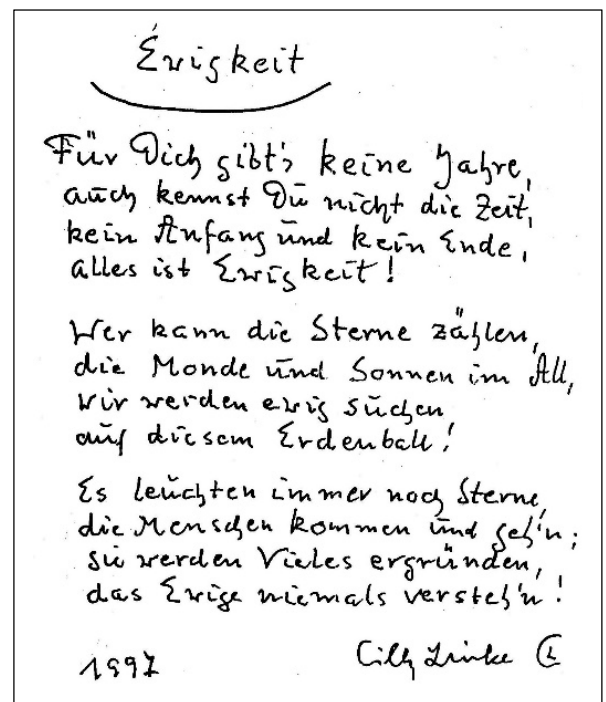 Ewigkeit
Für Dich gibt's keine Jahre,
auch kennst Du nicht die Zeit,
kein Anfang und kein Ende,
alles ist Ewigkeit!
Wer kann die Sterne zählen,
die Monde und Sonnen im All,
wir werden ewig suchen
auf diesem Erdenball!
Es leuchten immer noch Sterne,
die Menschen kommen und geh'n;
sie werden Vieles ergründen,
das Ewige niemals versteh'n!
1997
Cilly Linke